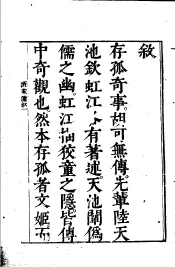 敘
存孤奇事胡可無傳先輩陸天
池欽虹江有著述天池闡僞
儒之幽虹江抽狡童之隱皆傳
中奇觀也然本存孤者文姬而
酒家傭敘